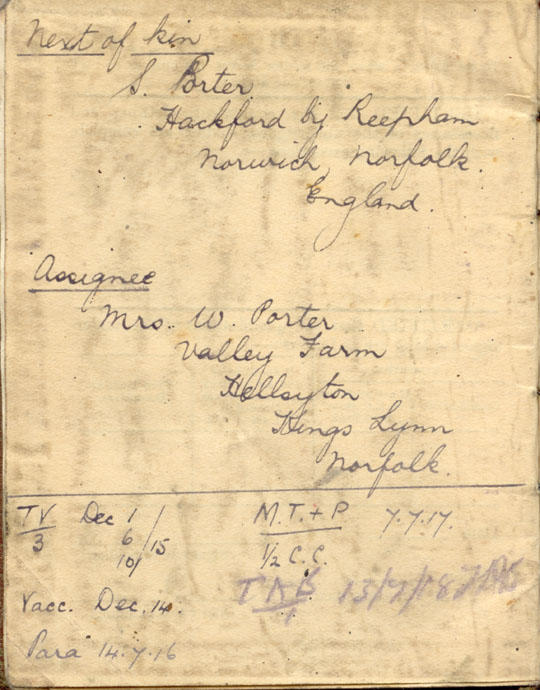 Next of kin
S. Porter
Hackford by Reepham
Norwich, Norfolk.
England.
Assignee
Mrs. W. Porter
Valley Farm
Hellsyton
Kings Lynn
Norfolk.
TV Dec 1
3 6 /15
10/
M.T.+P 7.7.17.
1/2 C.C.
TAB 13/2/18
Vacc. Dec. 14.
Para 14.7.16